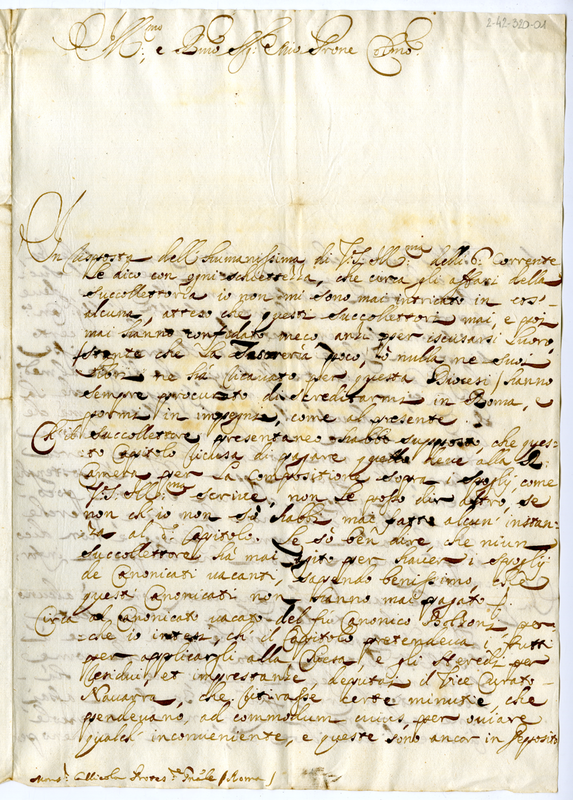 2-42-320-01
Ill.mo e Rmo Sig: Prone Colmo
In risposta dell'humanissima di V.S. Ill.ma delli 6: Corrente
Le dico con ogni schiettezza, che circa gli affari della
Succollettoria io non mi sono mai intricato in cos'
alcuna, atteso che questi succollettori mai, e poi
mai hanno confidato meco, anzi per escusarsi loro,
stante che la Tesoreria poco, ò nulla ne suoi
libri ne hà ricavato per questa Diocesi / hanno
sempre procurato di screditarmi in Roma, e
pormi in impegni, come al presente.
Che il succollettore presentaneo habbi supposto, che ques-
to Capitolo ricusa di pagare quello deve alla R:
Camera per la compositione sopra i spoglij come
V.S. Ill.ma scrive, non le posso dir altro, se
non ch'io non sò habbi mai fatto alcun' instan-
za al d.o Capitolo. Le sò ben dire, che niun
succollettore hà mai per haver i spoglij
de Canonicati vacanti, sapendo benissimo che
questi Canonicati non hanno mai pagato.
Circa al Canonicato vacato del fù Canonico per
che io intesi, ch'il Capitolo pretendeva i frutti
per applicargli alla Chiesa, e gli Heredi per
residui, et imprestanze, deputai il Vice Curato
Navarra, che ritirasse certe minute, che
pendevano, ad commodum cuius, per oviare
qualch' inconveniente, e queste sono ancor in deposito
Roma